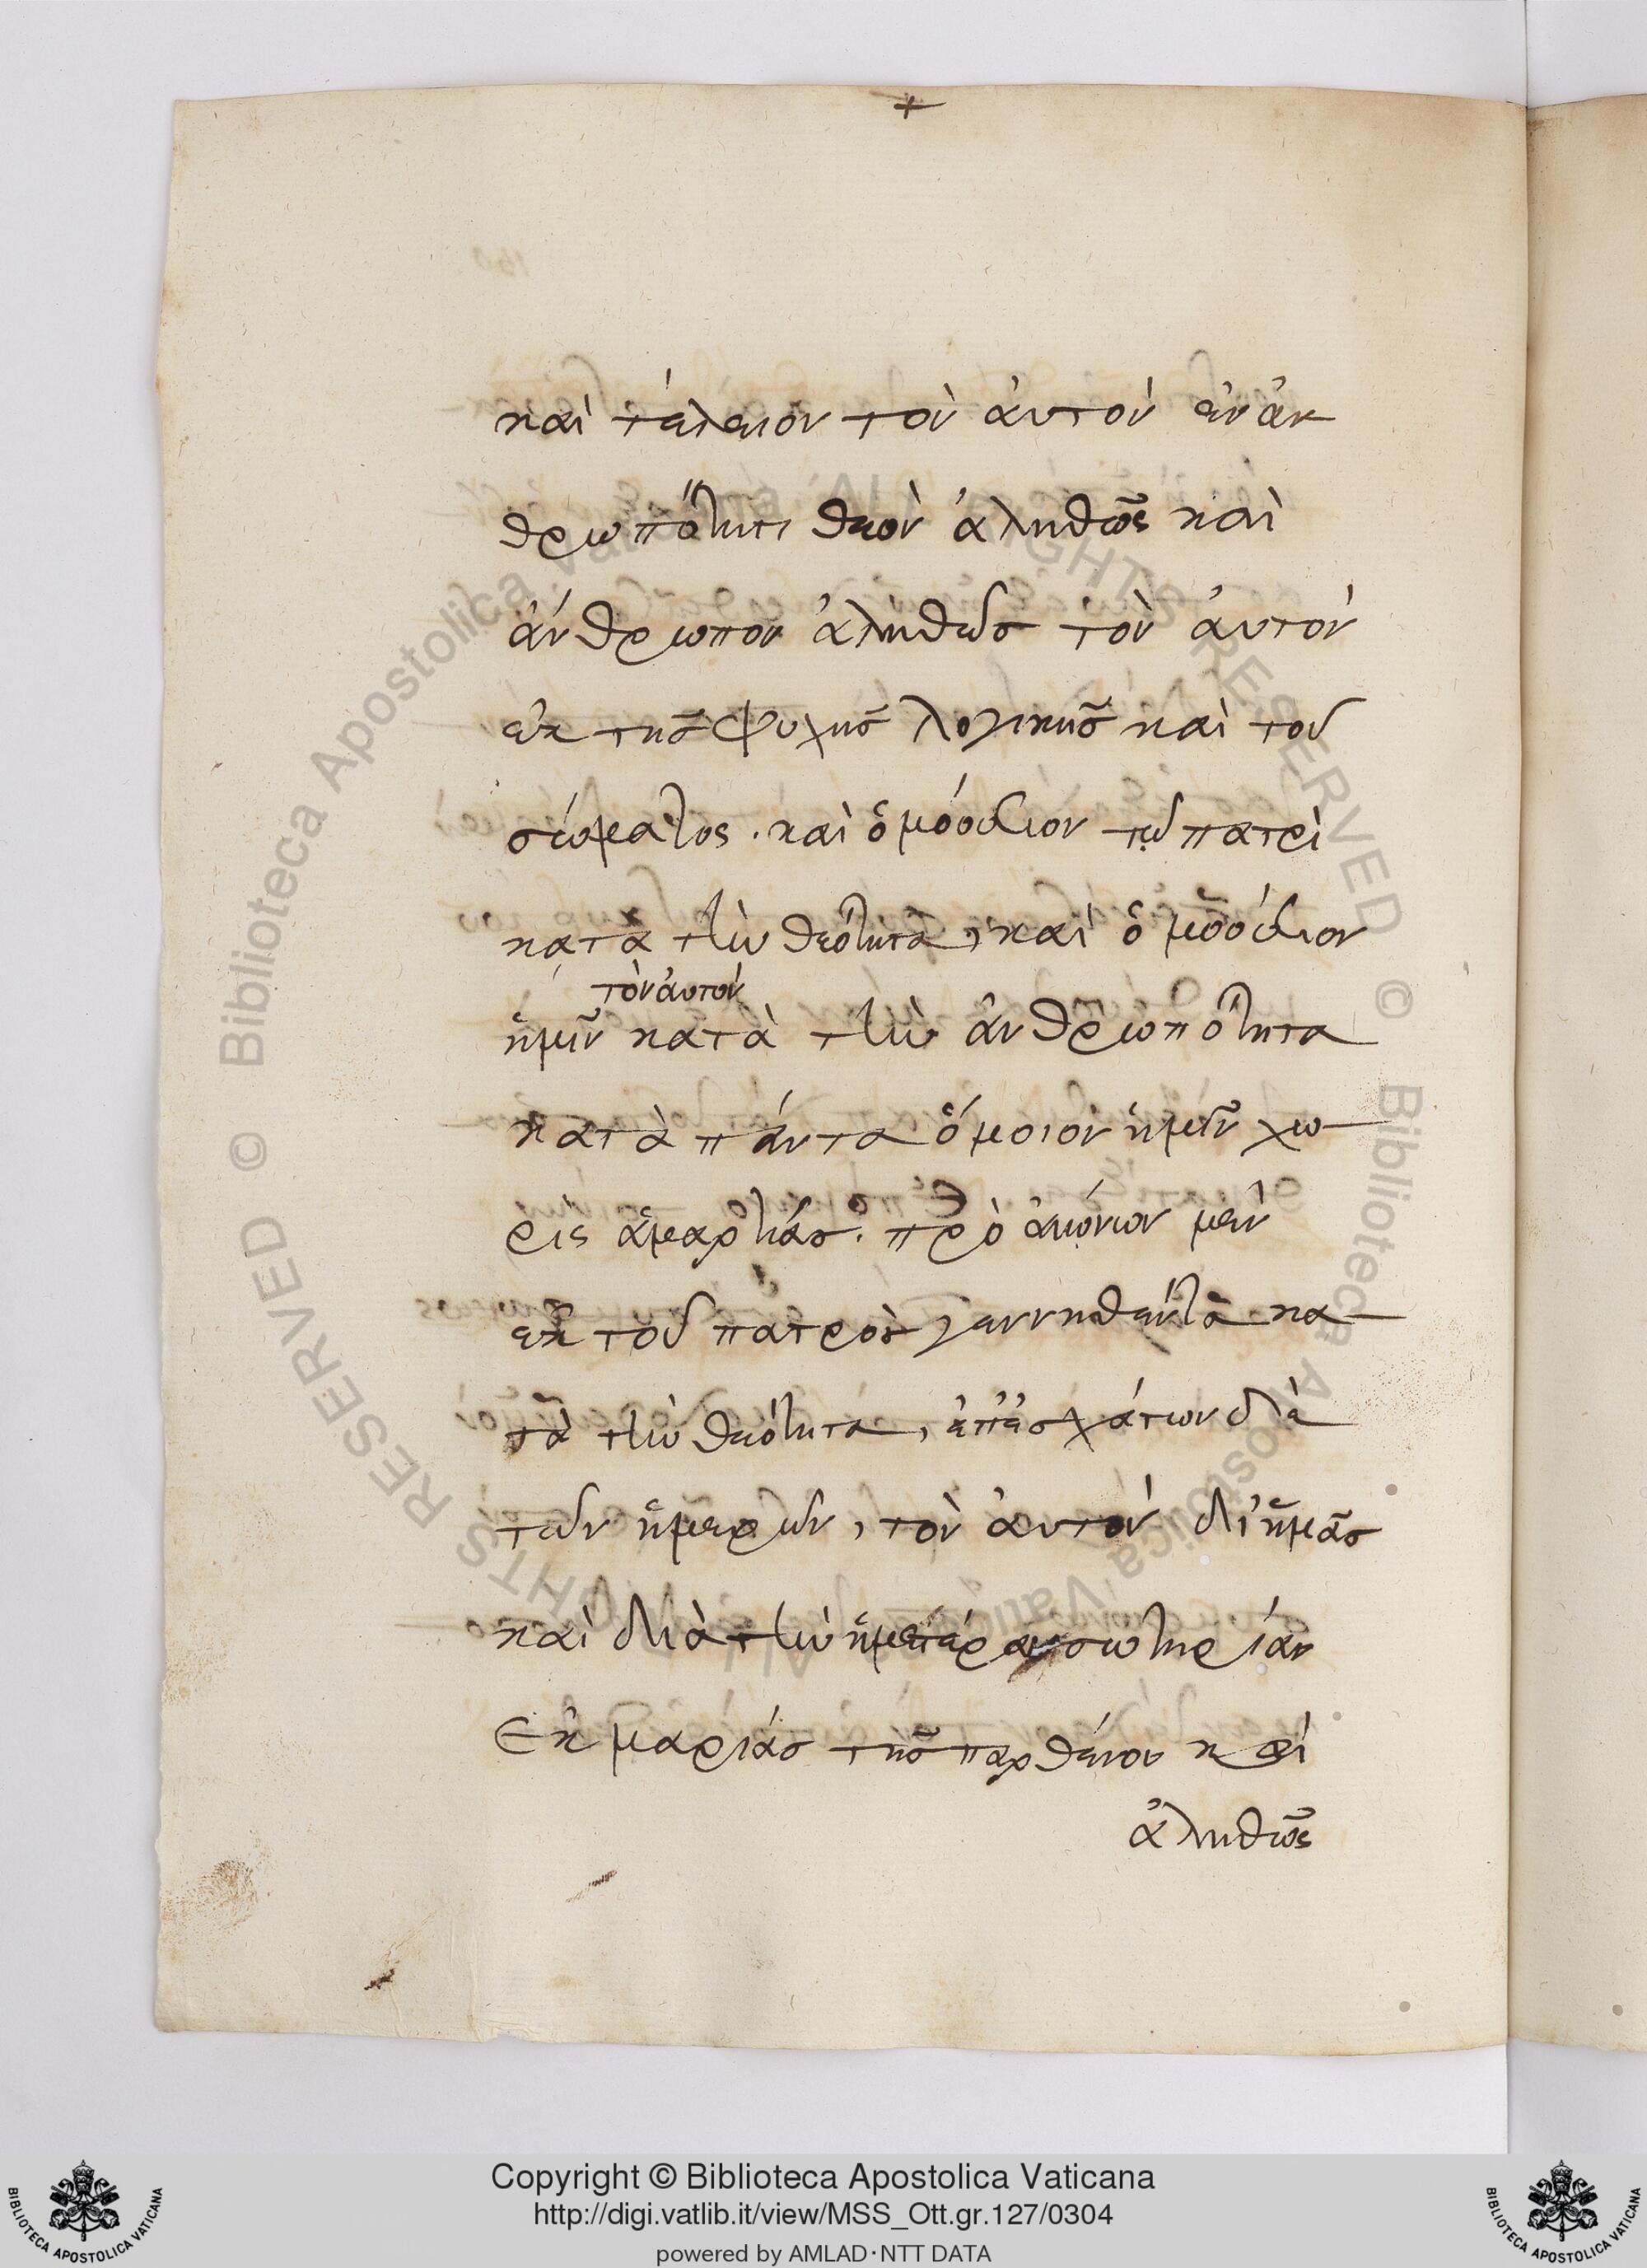 +
καὶ τέλειον τὸν ἀυτὸν ἐν ἀν
θρωπότητι θεὸν ἀληθῶς καὶ
ἄνθρωπον ἀληθῶσ τὸν ἀυτὸν
ἐκ τησ̃ ψυχησ̃ λογικησ̃ καὶ τοῦ
σώματος · καὶ ὁμοόυσιον τῷ πατρὶ
κατὰ τὴν θεότητα, καὶ ὁμοόυσιον
τὸν ἀυτὸν
ἡμῖν κατὰ τὴν ἀνθρωπότητα
κατὰ πάντα ὅμοιον ἡμῖν χω
ρὶς ἁμαρτίασ. πρὸ ἀιώνων μὲν
ἐκ τοῦ πατρὸσ γεννηθέντα κα
τὰ τὴν θεότητα, ἐπ' ἐσχάτων δὲ
τῶν ἡμερῶν, τὸν ἀυτὸν δι' ἡμᾶσ
καὶ διὰ τὴν ἡμετέραν σωτηρίαν
Ἐκ μαρίασ τῆσ παρθένου καὶ
ἀληθῶς
Copyright © Biblioteca Apostolica Vaticana
http://digi.vatlib.it/view/MSS_Ott.gr.127/0304
powered by AMLAD·NTT DATA
BIBLIOTECA APOSTOLICA VATICANA
BIBLIOTECA APOSTOLICA VATICANA
© Biblioteca Apostolica Vaticana ALL RIGHTS RESERVED
© Biblioteca Apostolica Vaticana ALL RIGHTS RESERVED